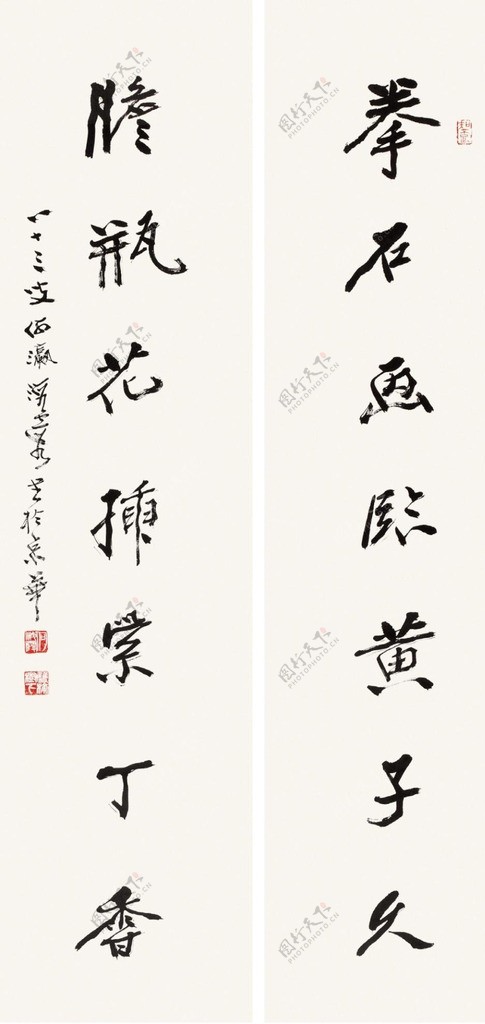 拳石画临黄子久
胆瓶花插紫丁香
八十三叟
於京华
图行天下
PHOTOPHOTO.CN